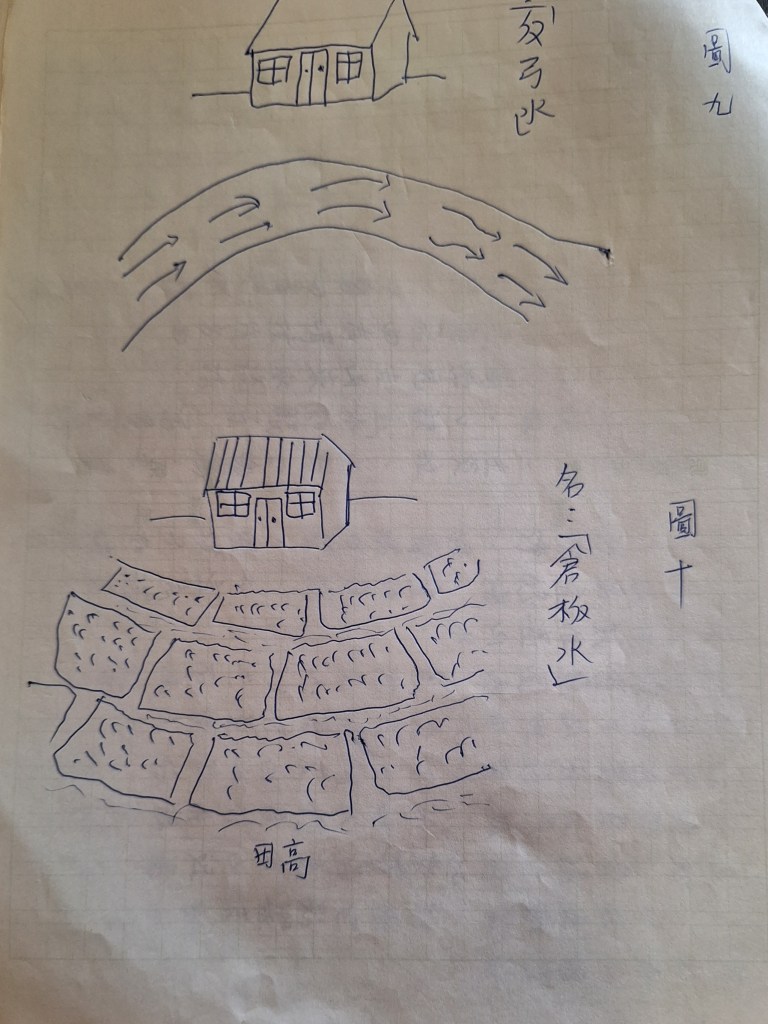 圖九
反弓水」
圖十
名：「倉板水」
田高